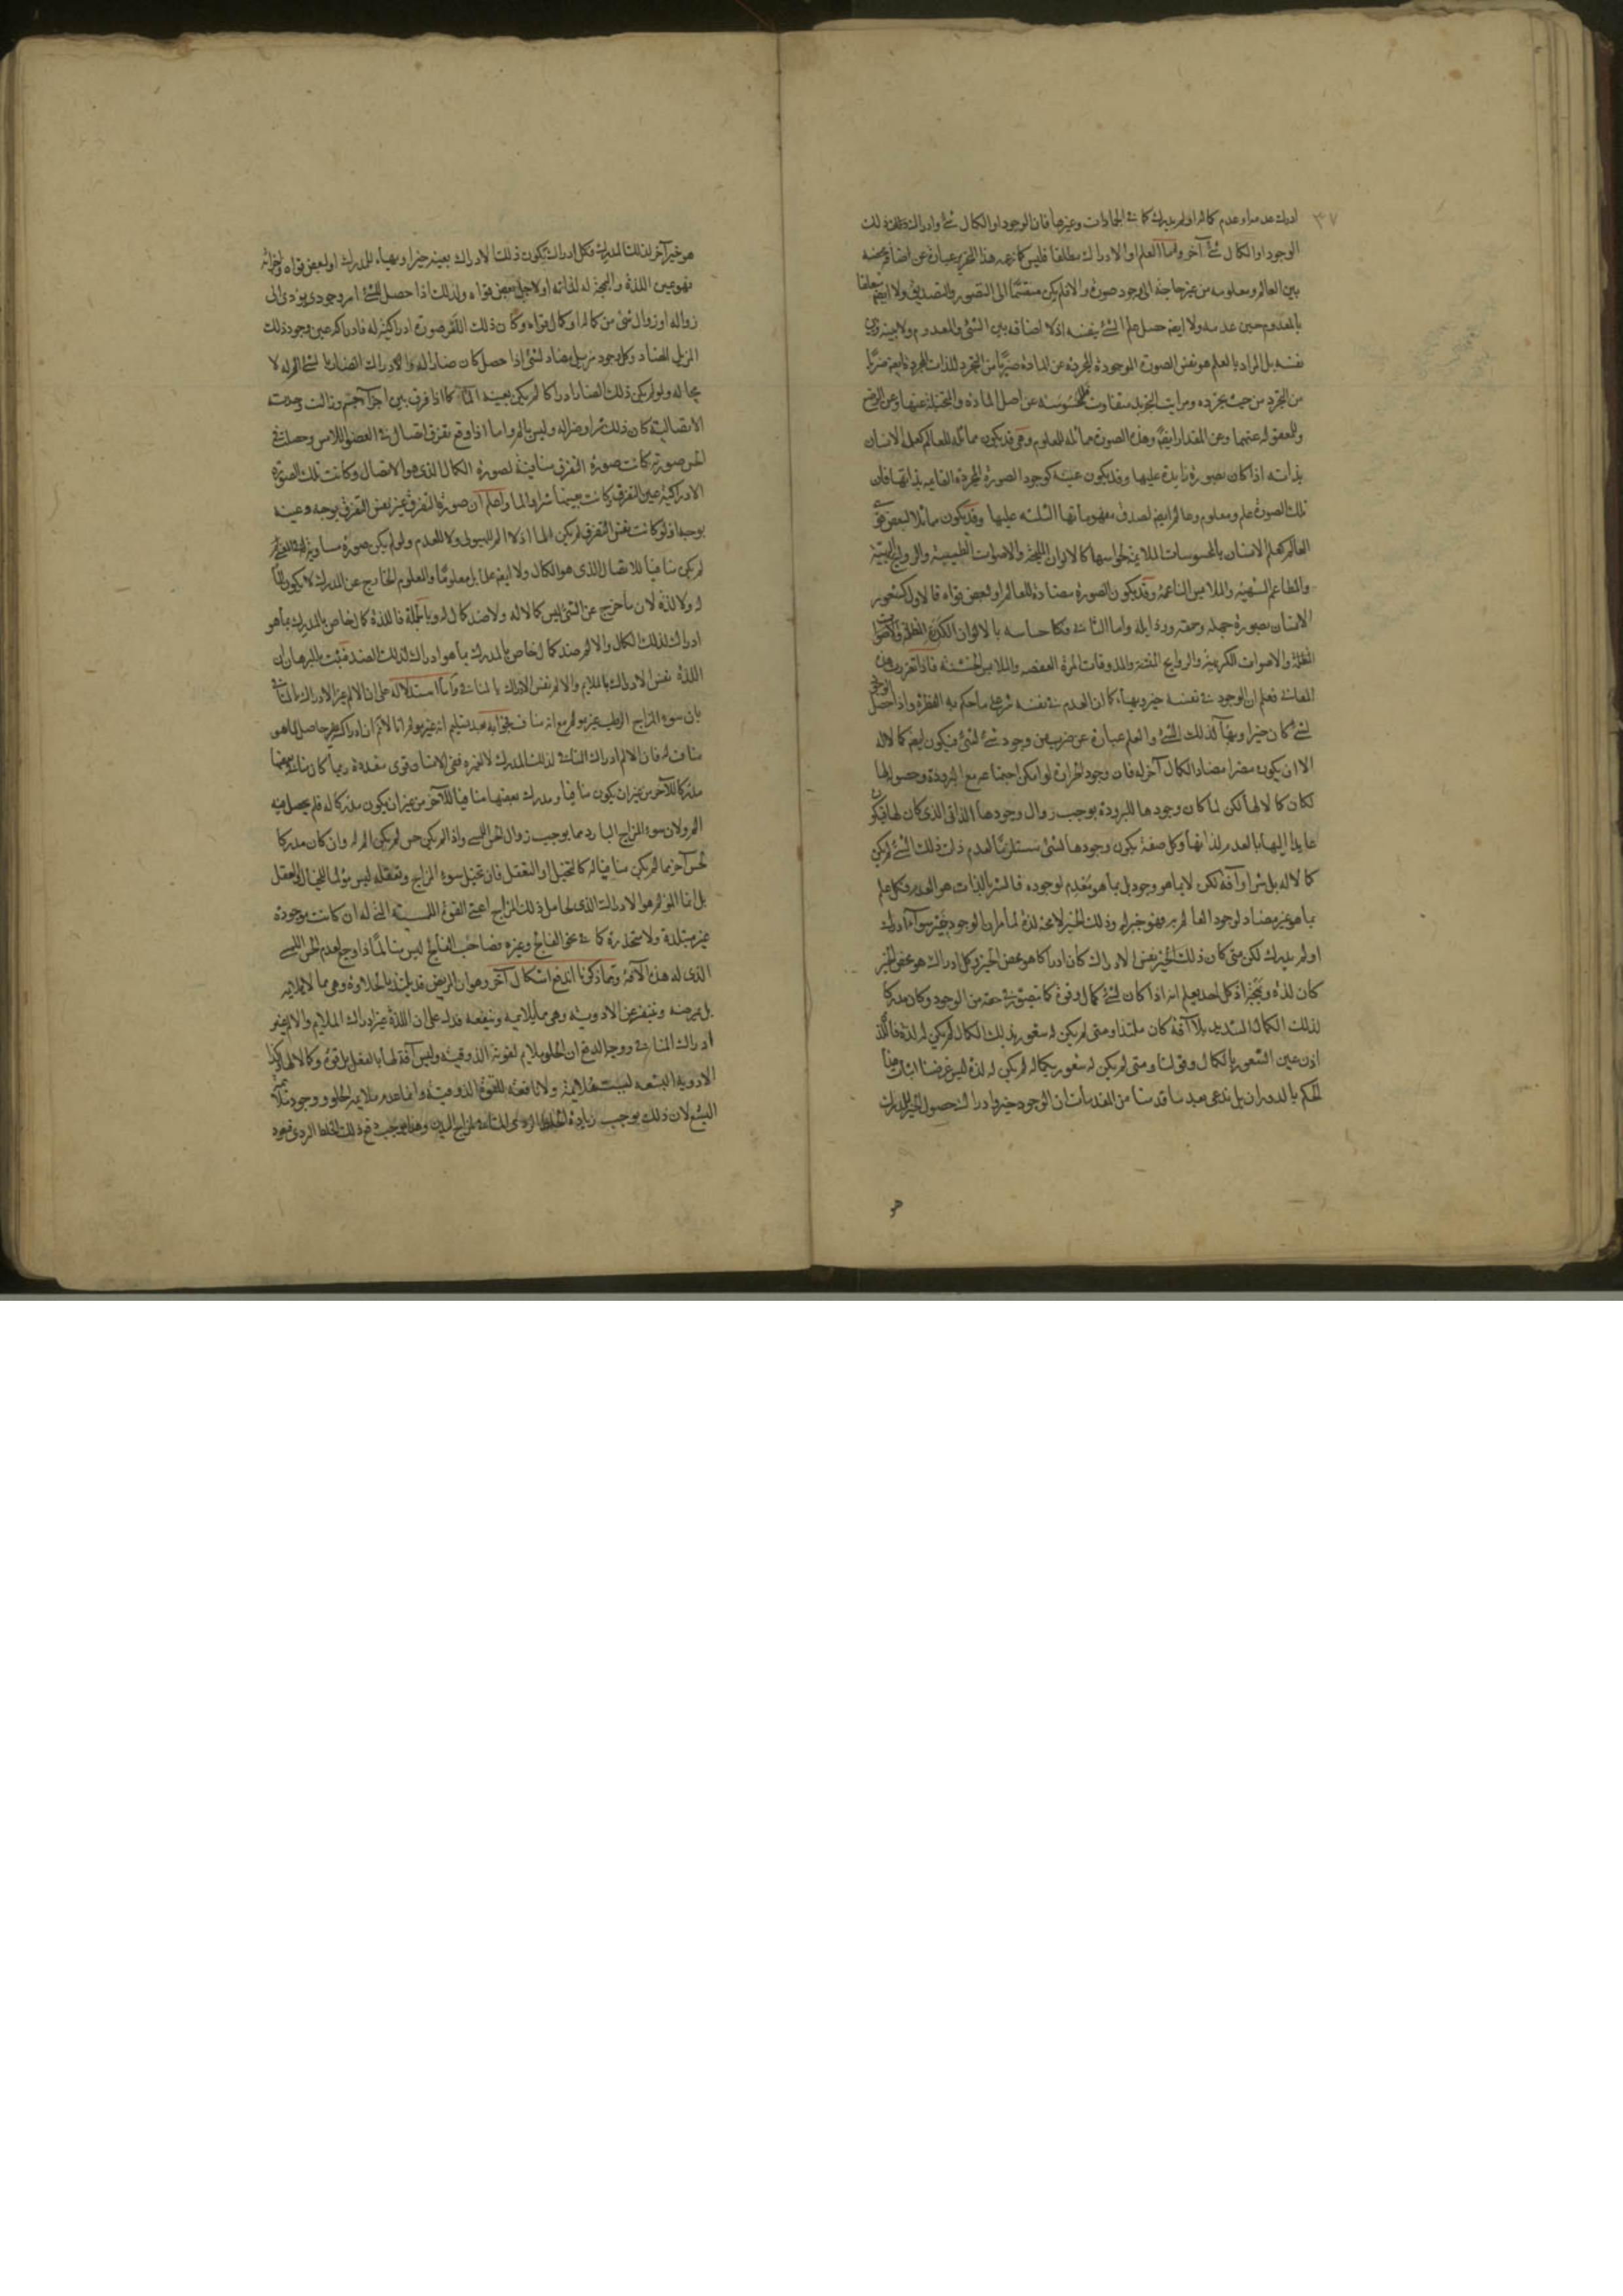 ٣٧
ادرك عدمه او عدم كماله او لم يدرك كما فى الجمادات وغيرها فان الوجود او الكمال شئ وادراك ذلك
الوجود او الكمال شئ آخر واما العلم او الادراك مطلقا فليس كما زعمه هذا النحرير عبارة عن اضافة محضة
بين العالم ومعلومه من غير حاجة الى وجود صورة والا فلم يكن منقسما الى التصور والتصديق ولا ايضم متعلقا
بالمعدوم حين عدمه ولا ايضم حصل علم الشئ بنفسه اذ لا اضافة بين الشئ والمعدوم ولا بينه وبين
نفسه بل المراد بالعلم هو نفس الصورة الموجودة المجردة عن المادة ضربا من التجرد للذات المجردة ايضم ضربا
من التجرد من حيث تجرده ومراتب التجريد متفاوت فالمحسوسة عن اصل المادة والمتخيلة عنها وعن الوضع
والمعقولة عنهما وعن المقدار ايضم وهذه الصورة مماثلة للمعلوم وهى قد يكون مماثلة للعالم كعلم الانسان
بذاته اذا كان بصورة زايدة عليها وقد يكون عينه كوجود الصورة المجردة القايمة بذاتها فان
تلك الصورة علم ومعلوم وعالم ايضم لصدق مفهوماتها الثلثة عليها وقد يكون مماثلا لبعض قوى
العالم كعلم الانسان بالمحسوسات الملايمة لحواسها كالالوان المليحة والاصوات الطيبة والروايح البهية
والمطاعم الشهية والملابس الناعمة وقد يكون الصورة مضادة للعالم او لبعض قواه فالاول كشعور
الانسان بصورة جهله وحمقه ورذايله واما الثانى فكاحساسه بالالوان الكدرة المظلمة والاضواء
المظلمة والاصوات الكريهة والروايح المنتنة والمذوقات المرة العفصة والملابس الخشنة فاذا تقررت هذه
المعانى فعلم ان الوجود فى نفسه خير وبهاء كما ان العدم فى نفسه شر على ما حكم به الفطرة واذا حصل الوجود
لشئ كان خيرا وبهاء لذلك الشئ والعلم عبارة عن ضرب من وجود شئ لشئ فيكون ايضم كمالا له
الا ان يكون مضرا مضادا لكمال آخر له فان وجود الحرارة لو امكن اجتماعه مع البرودة وحصولها
لكان كمالا لها لكن لما كان وجودها للبرودة يوجب زوال وجودها الذاتى الذى كان لها فيكون
عايدا اليها بالعدم لذاتها وكل صفة يكون وجودها لشئ مستلزما لعدم ذات ذلك الشئ لم يكن
كمالا له بل شرا وآفة لكن لا بما هو وجود بل بما هو معدم لوجوده فالشر بالذات هو العدم فكل علم
بما هو غير مضاد لوجود العالم به فهو خير له وذلك الخير لا محة لذة لما مر ان الوجود خير سواء ادرك
او لم يدرك لكن متى كان ذلك الخير نفس الادراك كان ادراكا هو محض الخير وكل ادراك هو محض الخير
كان لذة وبهجة اذ كل احد يعلم انه اذا كان لشئ كمال وقوة كما تصور فى حقه من الوجود وكان مدركا
لذلك الكمال الشديد بلا آفة كان ملتذا ومتى لم يكن له شعور بذلك الكمال لم يكن له لذة فاللذة
اذن عين الشعور بالكمال وقولنا ومتى لم يكن له شعور بكماله لم يكن له لذة ليس غرضنا اثبات هذا
الحكم بالدوران بل ندعى بعد ما قدمنا من المقدمات ان الوجود خير وادراك حصول الخير للمدرك
هو
هو خير آخر لذلك المدرك فكل ادراك يكون ذلك الادراك بعينه خيرا وبهاء للمدرك او لبعض قواه واجزائه
فهو عين اللذة والبهجة له لذاته او لاجل بعض قواه ولذلك اذا حصل للشئ امر وجودى يؤدى الى
زواله او زوال شئ من كماله او كمال قواه وكان ذلك الامر صورة ادراكية له فادراكه عين وجود ذلك
المزيل المضاد وكل وجود مزيل مضاد لشئ اذا حصل كان ضارا له والادراك المضاد بالشئ الم له لا
محالة ولو لم يكن ذلك المضار ادراكا لم يكن بعينه الما كما اذا فرق بين اجزاء جسم وزالت وحدته
الاتصالية كان ذلك شرا وضرا له وليس بالم واما اذا وقع تفرق اتصال فى العضو اللامس وحصلت فى
الحس صورته كانت صورة التفرق منافية لصورة الكمال الذى هو الاتصال وكانت تلك الصورة
الادراكية عين التفرق كانت بعينها شرا والما واعلم ان صورة التفرق غير نفس التفرق بوجه وعينه
بوجه اذ لو كانت نفس التفرق لم يكن الما اذ لا الم للهيولى ولا للعدم ولو لم يكن صورة مساوية
لم يكن منافيا للاتصال الذى هو الكمال ولا ايضم علما بل معلوما والمعلوم الخارج عن المدرك لا يكون الما
له ولا لذة لان ما خرج عن الشئ ليس كمالا له ولا ضد كمال له وبالجملة فاللذة كمال خاص بالمدرك بما هو
ادراك لذلك الكمال والالم ضد كمال خاص بالمدرك بما هو ادراك لذلك الضد فثبت بالبرهان ان
اللذة نفس الادراك بالملايم والالم نفس الادراك بالمنافى واما استدلاله على ان الالم غير الادراك بالمنافى
بان سوء المزاج الرطب غير مولم مع انه مناف فجوابه بعد تسليم انه غير مولم انا لا نم ان ادراكه غير حاصل لما هو
مناف له فان الالم ادراك المنافى لذلك المدرك لا لغيره ففى الانسان قوى متعددة ربما كان منافى بعضها
مدركا للآخر من غير ان يكون منافيا ومدرك بعضها منافيا للآخر من غير ان يكون مدركا له فلم يحصل فيه
الم ولان سوء المزاج البارد مما يوجب زوال الحس اللمسى واذا لم يكن حس لم يكن الم له وان كان مدركا
لحس آخر مما لم يكن منافيا له كالتخيل او التعقل فان تخيل سوء المزاج وتعقله ليس مولما للخيال والعقل
بل انما المولم هو الادراك الذى لحامل ذلك المزاج اعنى القوة اللمسية التى له ان كانت موجودة
غير متبلدة ولا متخدرة كما فى نحو الفالج وغيره فصاحب الفالج ليس متألما ذا وجع لعدم الحس اللمسى
الذى له هذه الآفة وبما ذكرنا اندفع اشكال آخر وهو ان المريض قد يلتذ بالحلاوة وهى مما لا يلايمه
بل يمرضه ويتنفر عن الادوية وهى مما يلايمه وينفعه فدل على ان اللذة غير ادراك الملايم والالم غير
ادراك المنافى ووجه الدفع ان الحلو ملايم لقوته الذوقية وليس آفة لها بالفعل بل قوة وكمالا لها وكذا
الادوية البشعة ليست ملايمة ولا نافعة للقوة الذوقية وانما عدم ملايمة الحلو ووجود ملايمة
البشع لان ذلك يوجب زيادة الخلط الردى المنافى لمزاج البدن وهذا يوجب دفع ذلك الخلط الردى فيعود